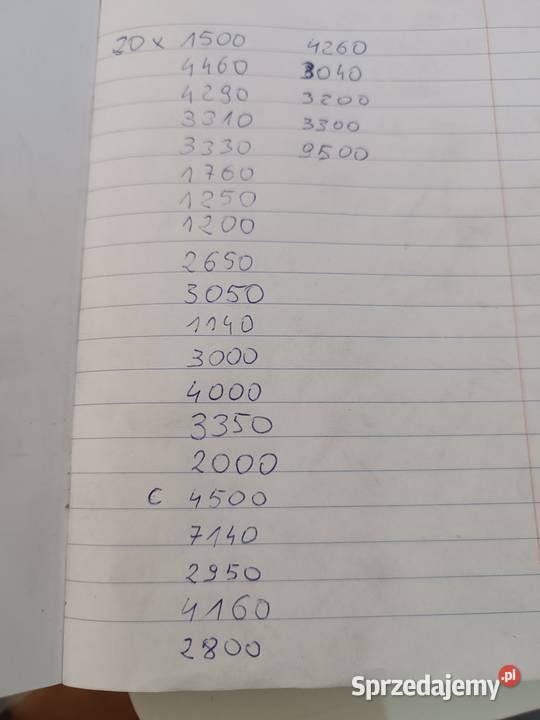 20 x 1500 4260
4460 3040
4290 3200
3310 3300
3330 9500
1760
1250
1200
2650
3050
1140
3000
4000
3350
2000
C 4500
7140
2950
4160
2800
Sprzedajemy.pl